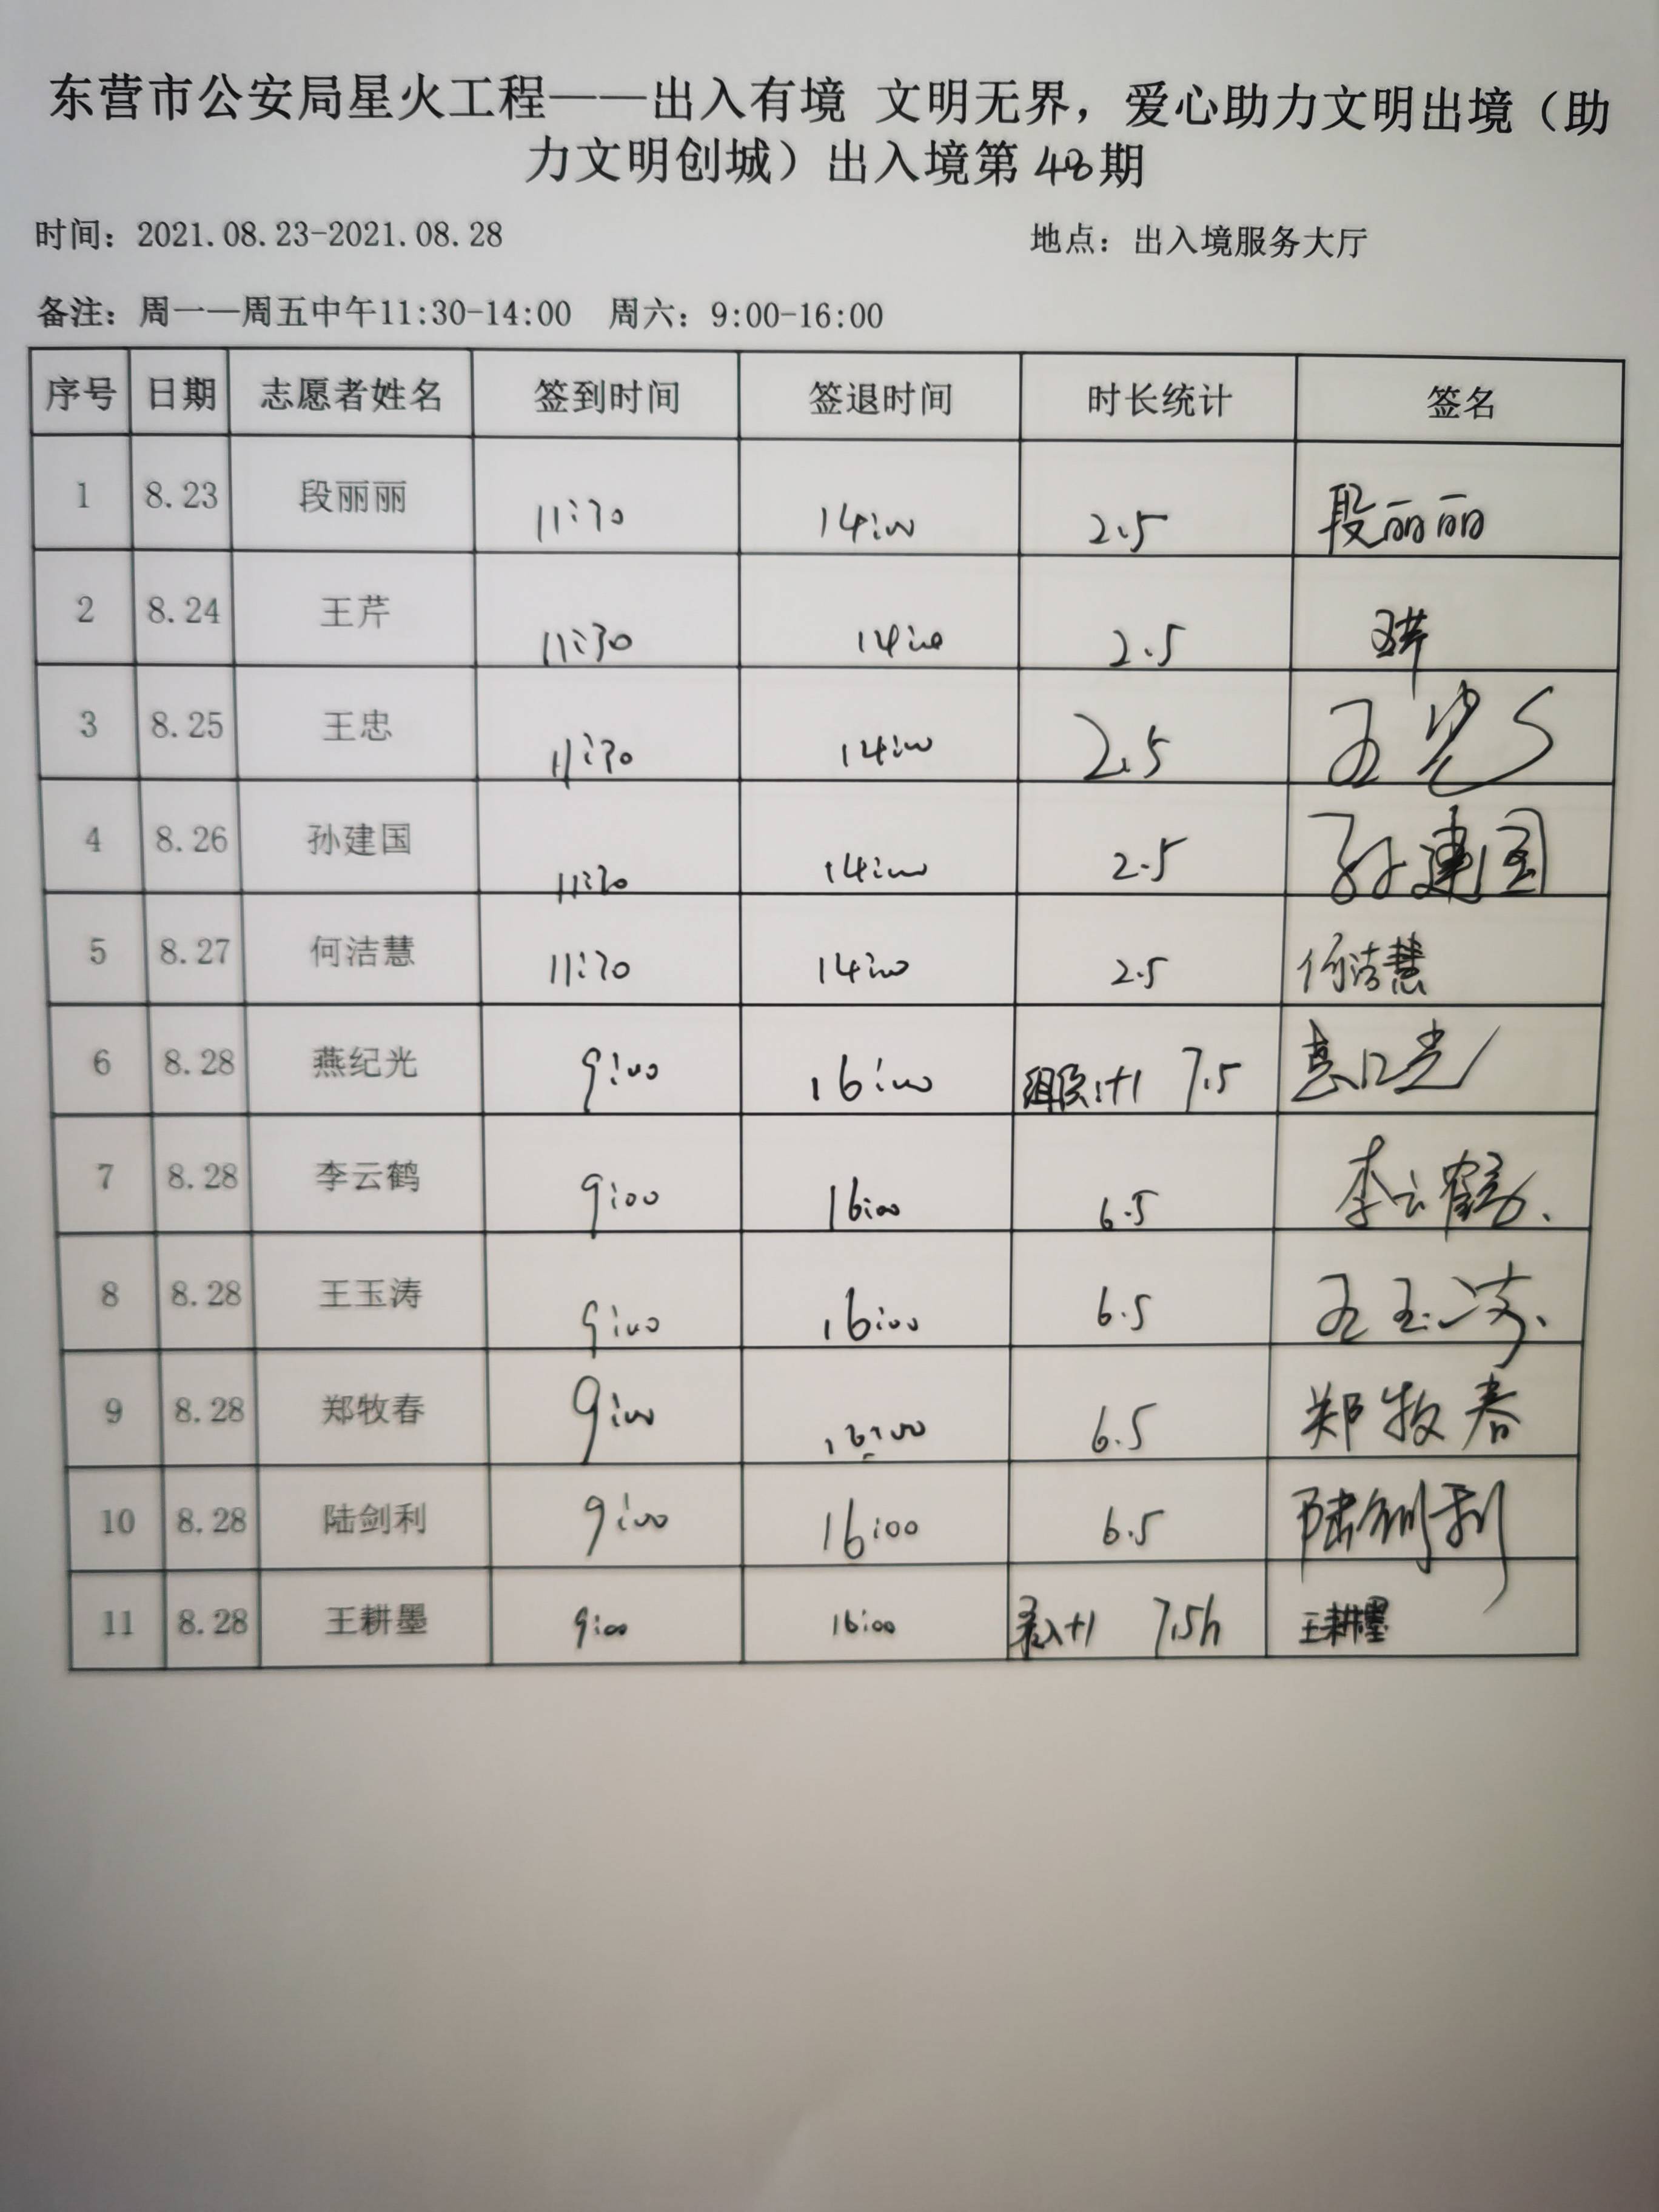 东营市公安局星火工程——出入有境 文明无界，爱心助力文明出境（助
力文明创城）出入境第48期
时间：2021.08.23-2021.08.28 地点：出入境服务大厅
备注：周一—周五中午11:30-14:00 周六：9:00-16:00
序号 日期 志愿者姓名 签到时间 签退时间 时长统计 签名
1 8.23 段丽丽 11:30 14:00 2.5 段丽丽
2 8.24 王芹 11:30 14:00 2.5 王芹
3 8.25 王忠 11:30 14:00 2.5 王忠
4 8.26 孙建国 11:30 14:00 2.5 孙建国
5 8.27 何洁慧 11:30 14:00 2.5 何洁慧
6 8.28 燕纪光 9:00 16:00 +1 7.5 燕纪光
7 8.28 李云鹤 9:00 16:00 6.5 李云鹤
8 8.28 王玉涛 9:00 16:00 6.5 王玉涛
9 8.28 郑牧春 9:00 16:00 6.5 郑牧春
10 8.28 陆剑利 9:00 16:00 6.5 陆剑利
11 8.28 王耕墨 9:00 16:00 录入+1 7.5h 王耕墨